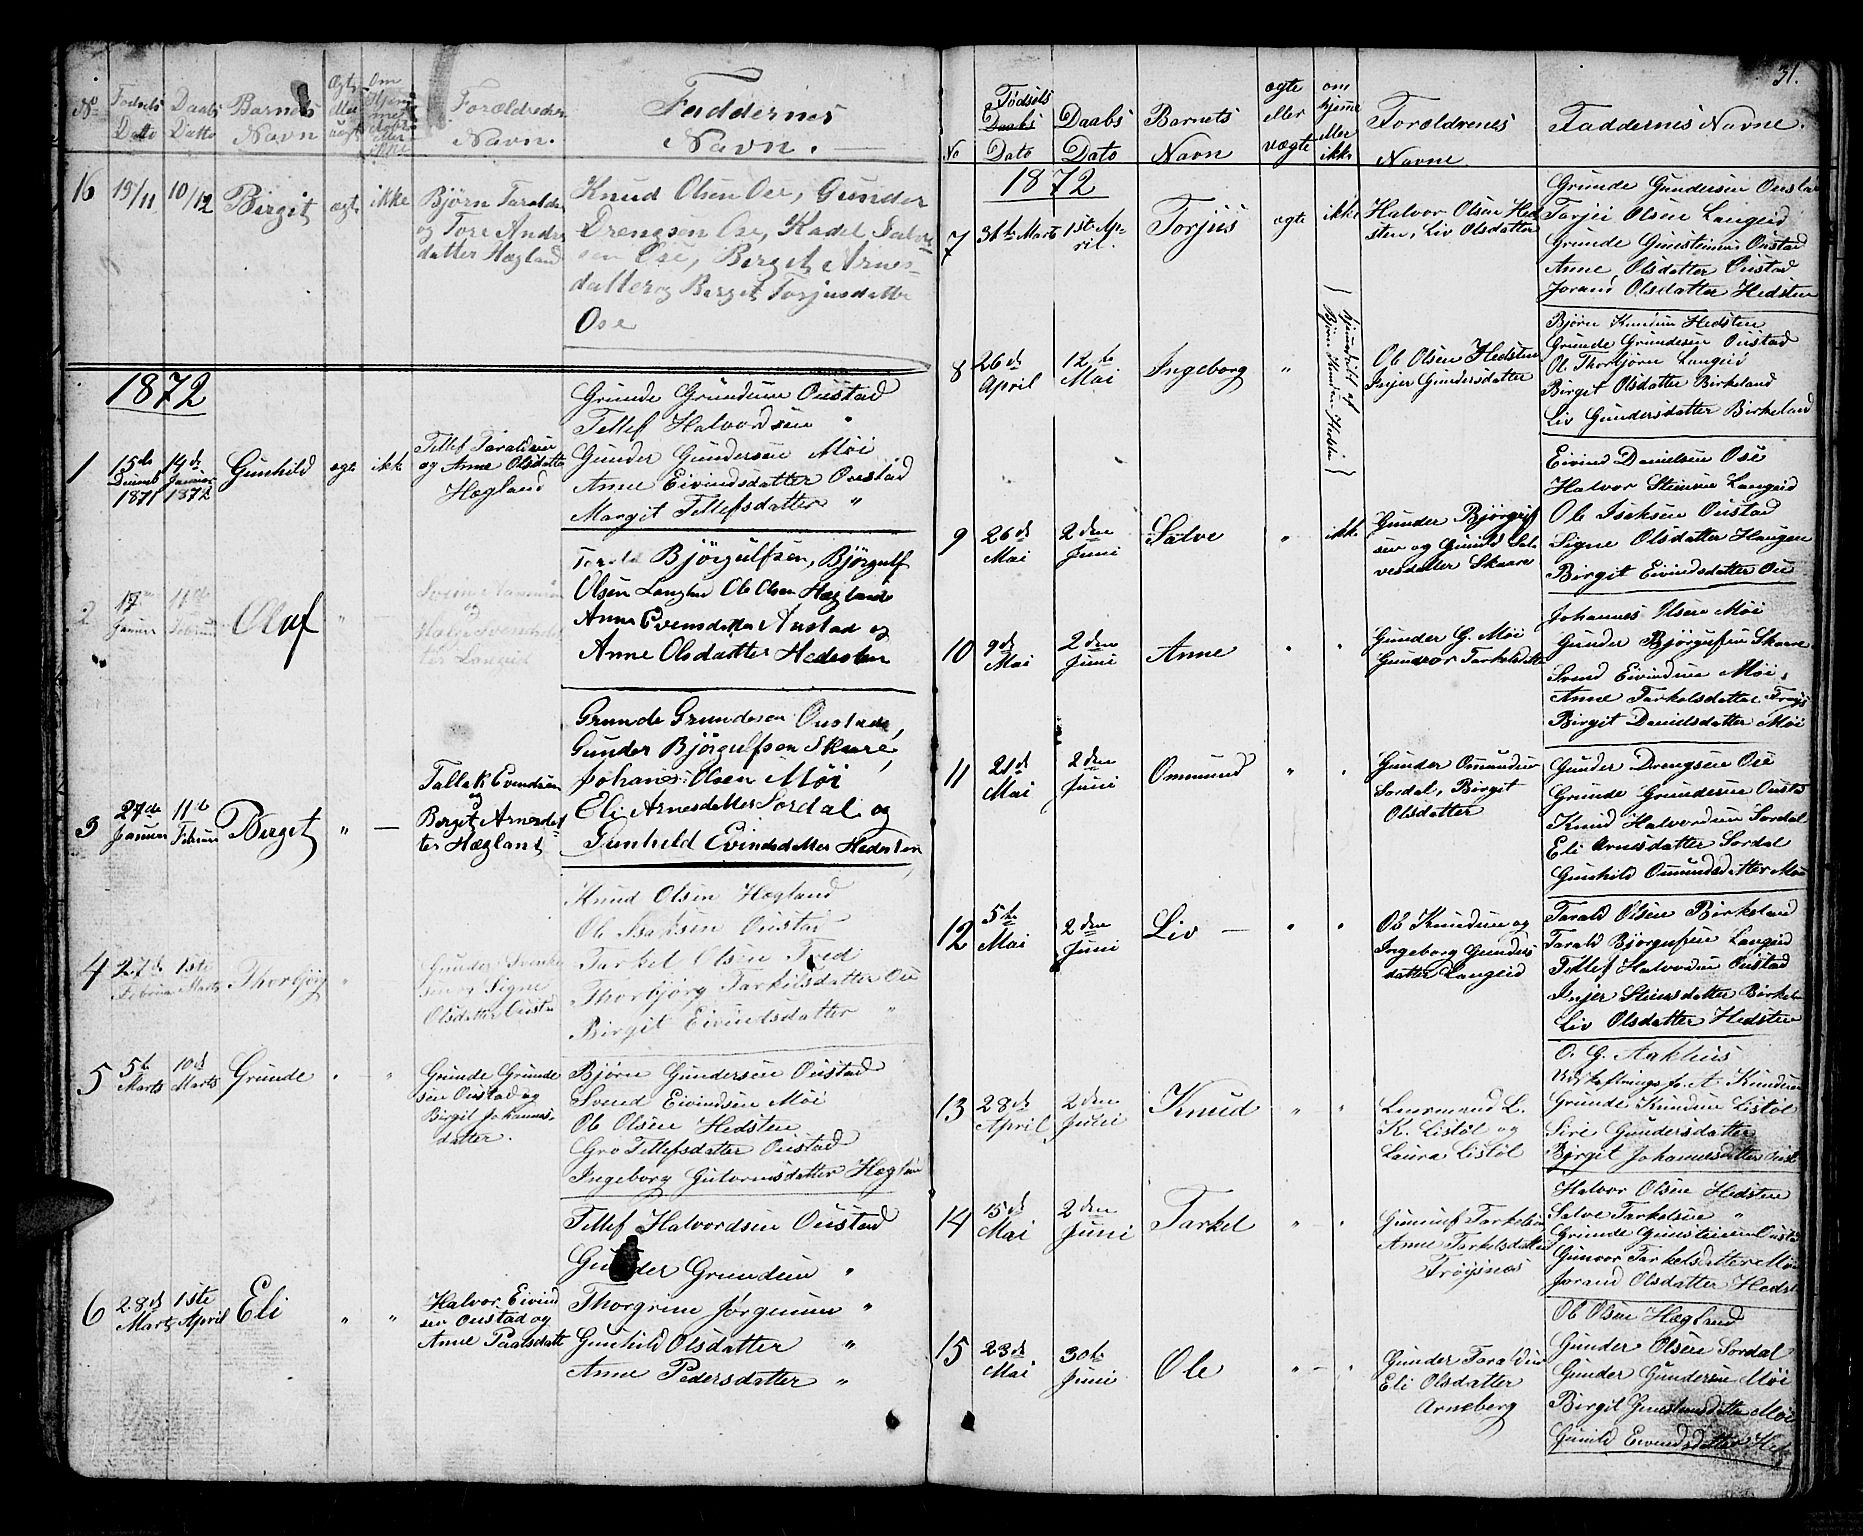 No Fødsels Dato Daabs Datto Barnets Navn Ægte eller uægt Om hjemmedøbt eller ikke Forældrenes Navn. Faddernes Navn.
16 13/11 10/12 Birgit ægte ikke
Bjørn Taralds
og Tore Anders
datter Hægland
Knud Olsen Ose, Gunder
Drengsen Ose, Kadel Salve
sen Ose, Berget Arnes-
datter og Berget Torjusdatter
Ose
1872
1 15de Decemb 1871 14de Januar 1872 Gunhild ægte ikke
Tellef Taraldsen
og Anne Olsdatter
Hægland
Grunde Grundsen Oustad
Tellef Halvordsen "
Gunder Gundersen Moi
Anne Eivindsdatter Oustad
Margit Tellefsdatter "
2 17de Januar Februar Olaf "
Langeid
Tarald Bjørgulfsen, Bjørgulf
Olsen Langeid Ole Olsen Hægland
Anne Evensdatter Austad og
Anne Olsdatter Hedesten
3 27de Januar 11te Februar Berget " —
Tallak Evendsen
og
Berget Arnesdat
ter Hægland
Grunde Grundesen Oustad,
Gunder Bjørgulfsen Skare,
Johanes Olsen Moi
Eli Arnesdatter Sordal og
Gunheld Evindsdatter Hedesten
4 27de Februar 1ste Marts Thorbjørg "
Gunder Svenke
sen og Signe
Olsdatter Oustad
Knud Olsen Hægland
Ole Isaksen Oustad
Tarkel Olsen
Thorbjørg Tarkelsdatter Ose
Birgit Eivindsdatter "
5 5te Marts 10de Marts Grunde " — "
Grunde Grunde
sen Oustad og
Birgit Johannes-
datter.
Bjørn Gundersen Oustad
Svend Eivindsen Moi
Ole Olsen Hedsten
Gro Tellefsdatter Oustad
Ingeborg Gutormsdatter Hægland
6 28de Marts 1ste April Eli " "
Halvor Eivind
sen Oustad og
Anne Paalsdatt
Tellef Halvordsen Oustad
Gunder Grundsen "
Thorgrim Jørgensen "
Gunhild Olsdatter "
Anne Pedersdatter "
31.
No Fødsels Dato Daabs Dato Barnets Navn ægte eller uægte om hjeme eller ikke Forældrenes Navne Faddernes Navne.
1872
7 31te Marts 1ste April. Torjus ægte ikke
Halvor Olsen Hed
sten, Liv Olsdatter
Grunde Gundersen Oustad
Tarjei Olsen Langeid
Grunde Gunsteinsen Oustad
Anne Olsdatter Oustad
Jorand Olsdatter Hedsten
8 26de April 12te Mai Ingeborg "
hjemdøbt af
Bjørn Knudsen Hedsten
Ole Olsen Hedsten
Injer Gundersdatter
Bjørn Knudsen Hedsten
Grunde Grundesen Oustad
Ole Thorbjørn Langeid
Birgit Olsdatter Birkeland
Liv Gundersdatter Birkeland
9 26de Mai 2den Juni Salve " ikke
Gunder Bjørgulf
sen og Gunild Sal
vesdatter Skaare
Eivind Danielsen Ose
Halvor Steinsen Langeid
Ole Isaksen Oustad
Signe Olsdatter Haugen
Birgit Eivindsdatter Ose
10 9de Mai 2den Juni Anne " "
Gunder G. Moi
Gunvor Tarkelsdatter
Johannes Olsen Moi
Gunder Bjørgufsen Skaare
Svend Eivindsen Moi,
Anne Tarkelsdatter Frøys
Birgit Danielsdatter Moi
11 21de Mai 2den Juni Ommund " "
Gunder Omundsen
Sordal, Birgit
Olsdatter
Gunder Drengsen Ose
Grunde Grundesen Oustad
Knud Halvordsen Sordal
Eli Arnesdatter Sordal
Gunhild Omundsdatter Moi
12 5te Mai 2den Juni Liv — " "
Ole Knudsen og
Ingeborg Gunders
datter Langeid
Tarald Olsen Birkeland
Tarald Bjørgufsen Langeid
Tellef Halvordsen Oustad
Injer Steinsdatter Birkeland
Liv Olsdatter Hedsten
13 28de April 2den Juni Knud " "
Leonsmand L.
K. Listøl og
Laura Listøl
O. G. Aakhus
Udskiftningsf. A Knudsen
Grunde Knudsen Listøl
Siri Gundersdatter
Birgit Johannesdatter Oust
14 15de Mai 2den Juni Tarkel " "
Gunnuf Tarkelsen
Anne Tarkelsdatter
Frøysnæs
Halvor Olsen Hedsten
Salve Tarkelsen "
Grunde Gunsteinsen Oustad
Gunvor Tarkelsdatter Moi
Jorand Olsdatter Hedst
15 23de Mai 30te Juni Ole " — "
Gunder Taraldsen
Eli Olsdatter
Arneberg
Ole Olsen Hægland
Gunder Olsen Sordal
Gunder Gundersen Moi
Birgit Gunsteinsdatter Moi
Gunild Eivindsdatter Heds